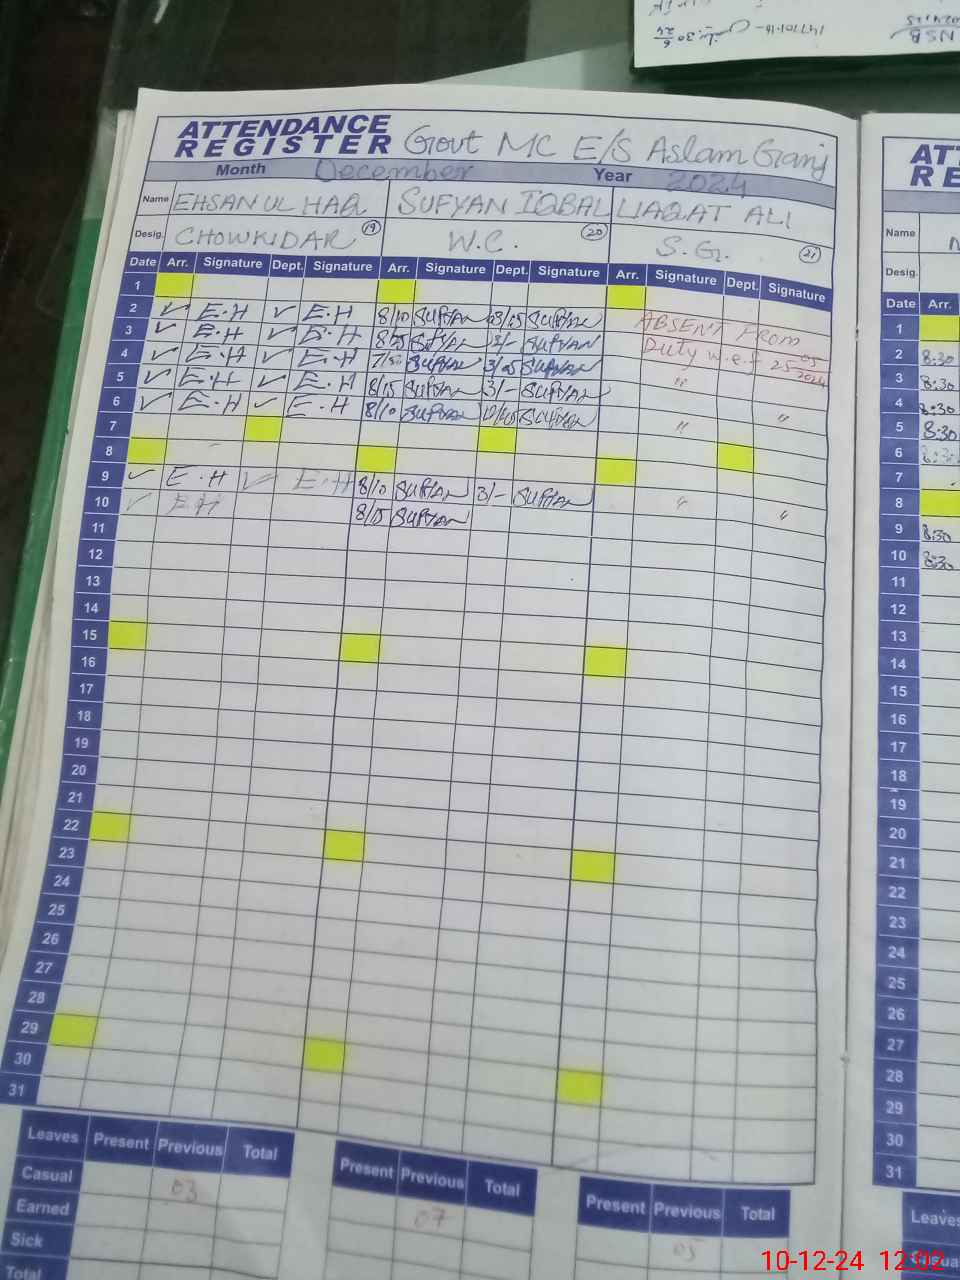 ATTENDANCE
REGISTER
Govt MC E/S Aslam Ganj
Month December Year 2024
Name EHSAN UL HAQ SUFYAN IQBAL LIAQAT ALI
Desig. CHOWKIDAR 19 W.C. 20 S.G. 21
Date Arr. Signature Dept. Signature Arr. Signature Dept. Signature Arr. Signature Dept. Signature
1
2 ✓ E.H ✓ E.H 8/10 SUFYAN SUFYAN ABSENT FROM
3 ✓ E.H ✓ E.H SUFYAN 3/- SUFYAN Duty w.e.f 25 05 2024
4 ✓ E.H ✓ E.H SUFYAN SUFYAN "
5 ✓ E.H ✓ E.H 8/15 SUFYAN 3/- SUFYAN "
6 ✓ E.H ✓ E.H 8/10 SUFYAN SUFYAN " "
7
8
9 ✓ E.H ✓ E.H 8/10 SUFYAN 3/- SUFYAN " "
10 ✓ E.H 8/15 SUFYAN
11
12
13
14
15
16
17
18
19
20
21
22
23
24
25
26
27
28
29
30
31
Leaves Present Previous Total Present Previous Total Present Previous Total
Casual 03 07 05
Earned
Sick
Total
ATT
RE
Name
Desig.
Date Arr.
1
2 8:30
3 8:30
4 8:30
5 8:30
6 8:30
7
8
9 8:30
10 8:30
11
12
13
14
15
16
17
18
19
20
21
22
23
24
25
26
27
28
29
30
31
Leaves
NSB
10-12-24 12:02